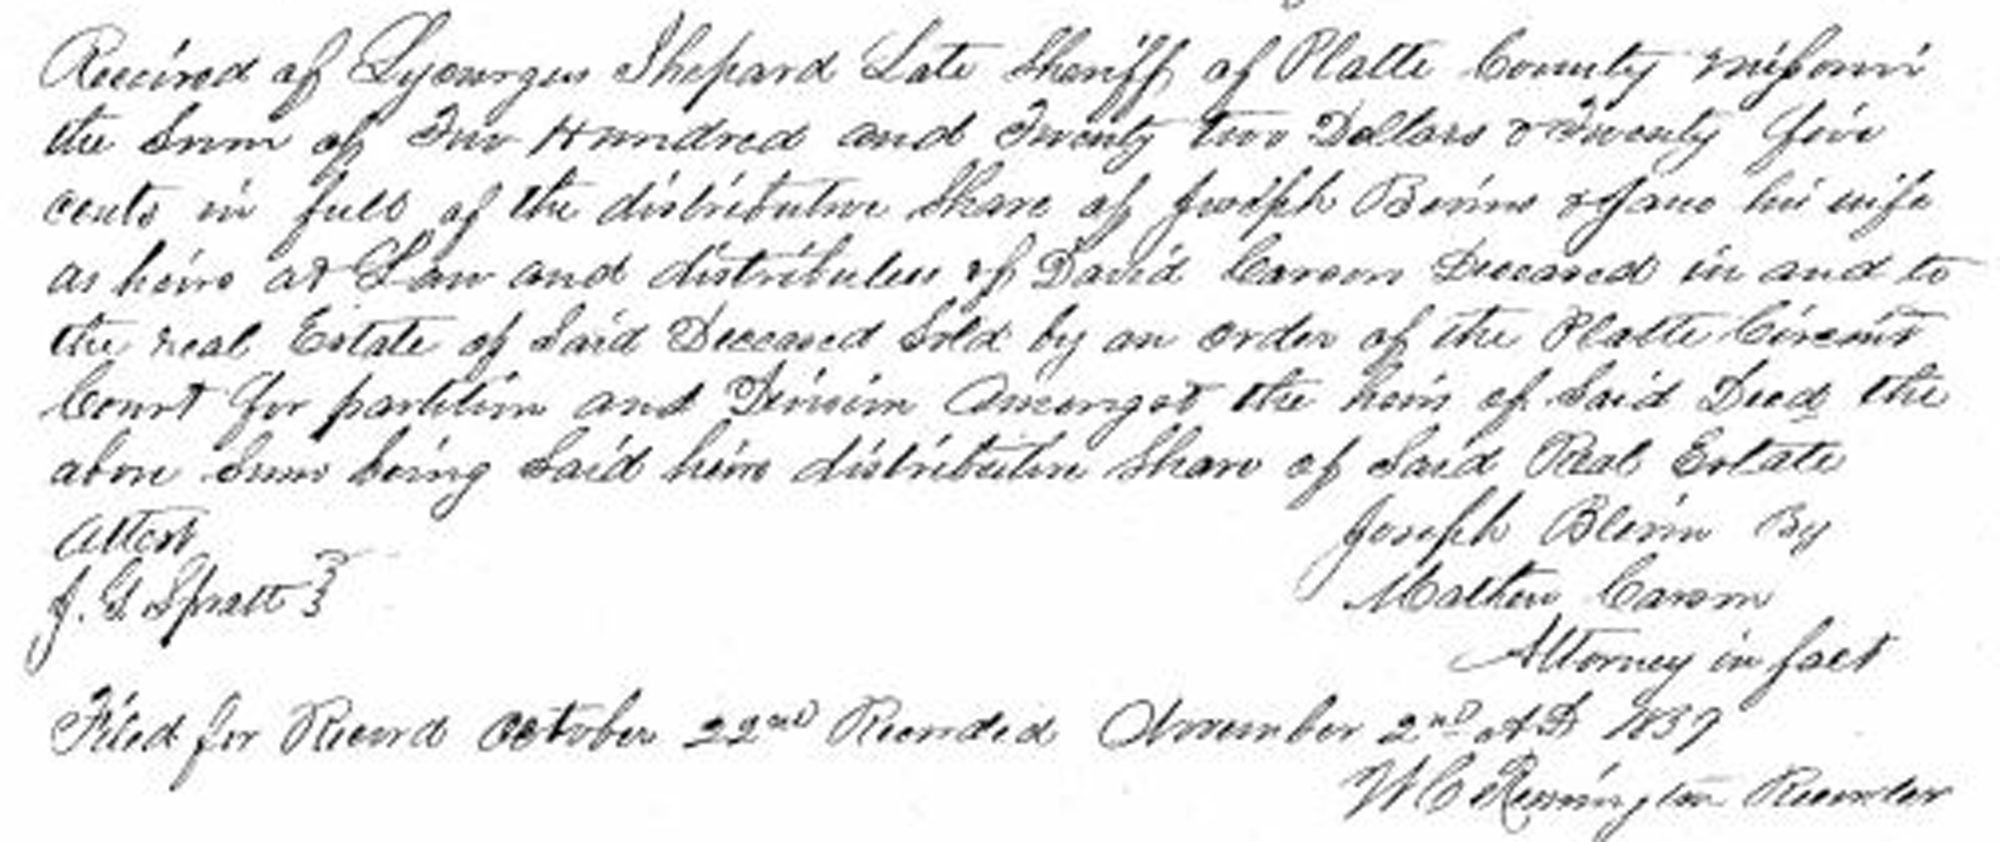 Received of Lycurgus Shepard Late Sheriff of Platte County Missouri
the Sum of Two Hundred and Twenty two Dollars & Twenty five
cents in full of the distributive Share of Joseph & Jane his wife
as heirs at Law and distributees of David Carson Deceased in and to
the real Estate of Said Deceased Sold by an order of the Platte Circuit
Court for partition and Division Amongst the heirs of Said Decd the
above Sum being Said heirs distributive Share of Said Real Estate
Attest
J. G. Spratt }
Joseph By
Mathew Carson
Attorney in fact
Filed for Record October 22nd Recorded November 2nd AD
W C Remington Recorder